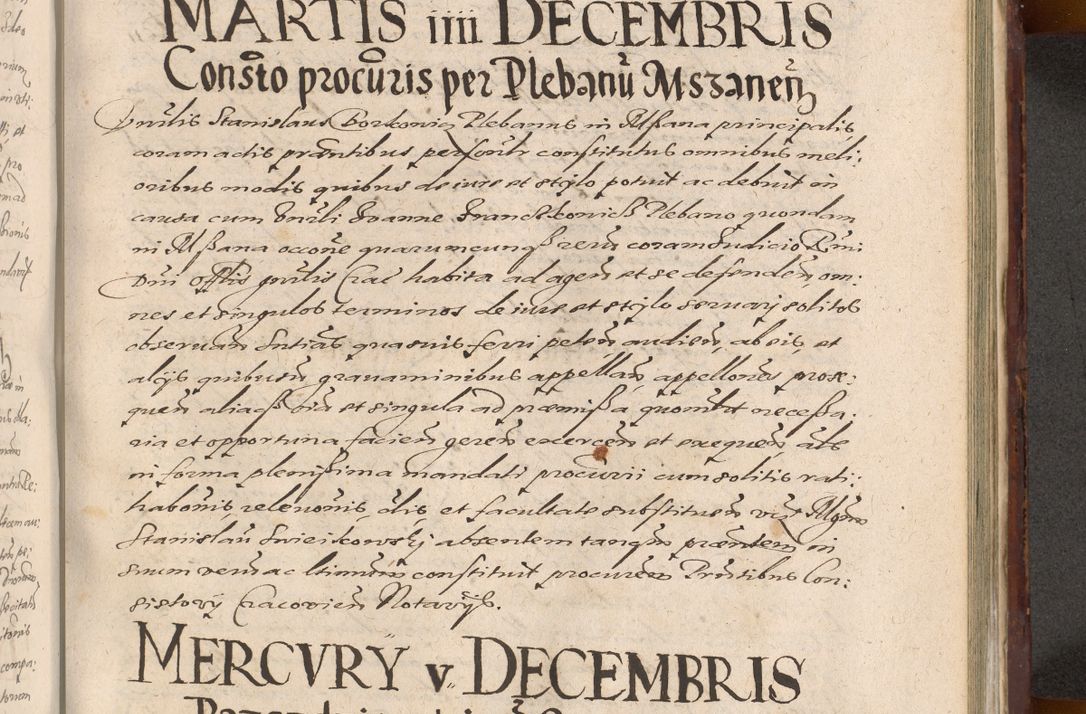 MARTIS iiii DECEMBRIS
Consto procuris per Plebanū Mszaneñ
Dnūlis Stanislaus Borkowicz Plebanus in Mssana principalis,
coram actis præntibus personlr constitutus omnibus meli:
oribus modis quibus de iure et stylo potuit ac debuit in
causa cum Dnūli Joanne Plebano quondam
in Mssana occōne quarumcunqȝ rerū coram Judicio Rmi
Dni offlis gnrlis Crac habita ad agen et se defenden, om:
nes et singulos terminos de iure et stylo servari solitos
observan Sntias quasvis ferri peten, audien, ab eis, et
alijs quibusvi gravaminibus appellan, appellones prose:
quen aliaqȝ oīa et singula ad præmissa quomlt necessa:
ria et opportuna facien geren exercen et exequen, als
in forma plenissima mandati procurii cum solitis rati:
habonis, relevonis, alis, et facultate substituen viz Mgm
Stanislau absentem tanqm præntem in
suum verum ac ltimum constituit procurem Prntibus Con:
sistorij Cracovien Notarijs.
MERCVRY v DECEMBRIS